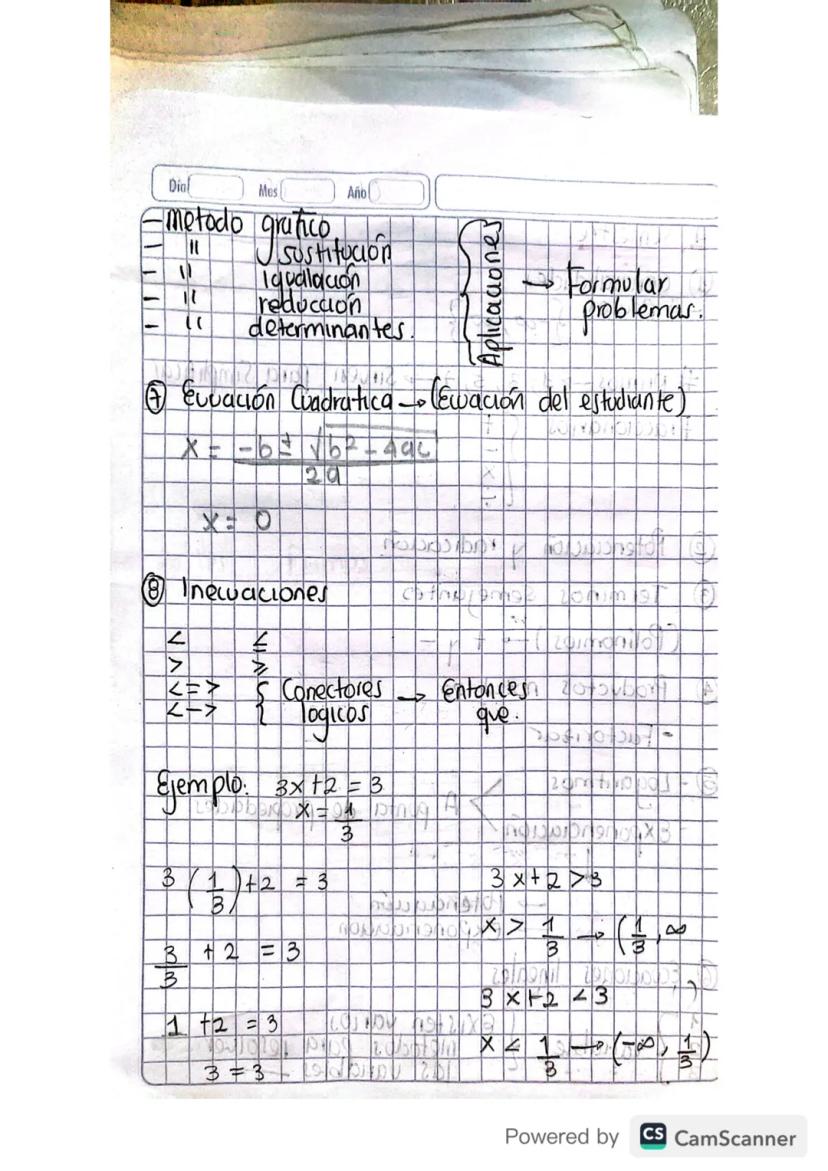 Día Mes Año
- metodo grafico
- " sustitución
- " igualación
- " reducción
- " determinantes.
Aplicaciones → Formular
problemas.
⑦ Ecuación Cuadratica → (Ecuación del estudiante)
x = -b ± √b² - 4ac
2a
x = 0
⑧ Inecuaciones
< ≤
> ≥
<=> { Conectores → Entonces
<-> logicos que.
Ejemplo: 3x+2 = 3
x = 1/3
3 (1/3) +2 = 3 3x+2 >3
x > 1/3 → (1/3, ∞
3/3 + 2 = 3
)
3x+2 <3
1 +2 = 3
x < 1/3 → (-∞, 1/3)
3 = 3
Powered by CS CamScanner